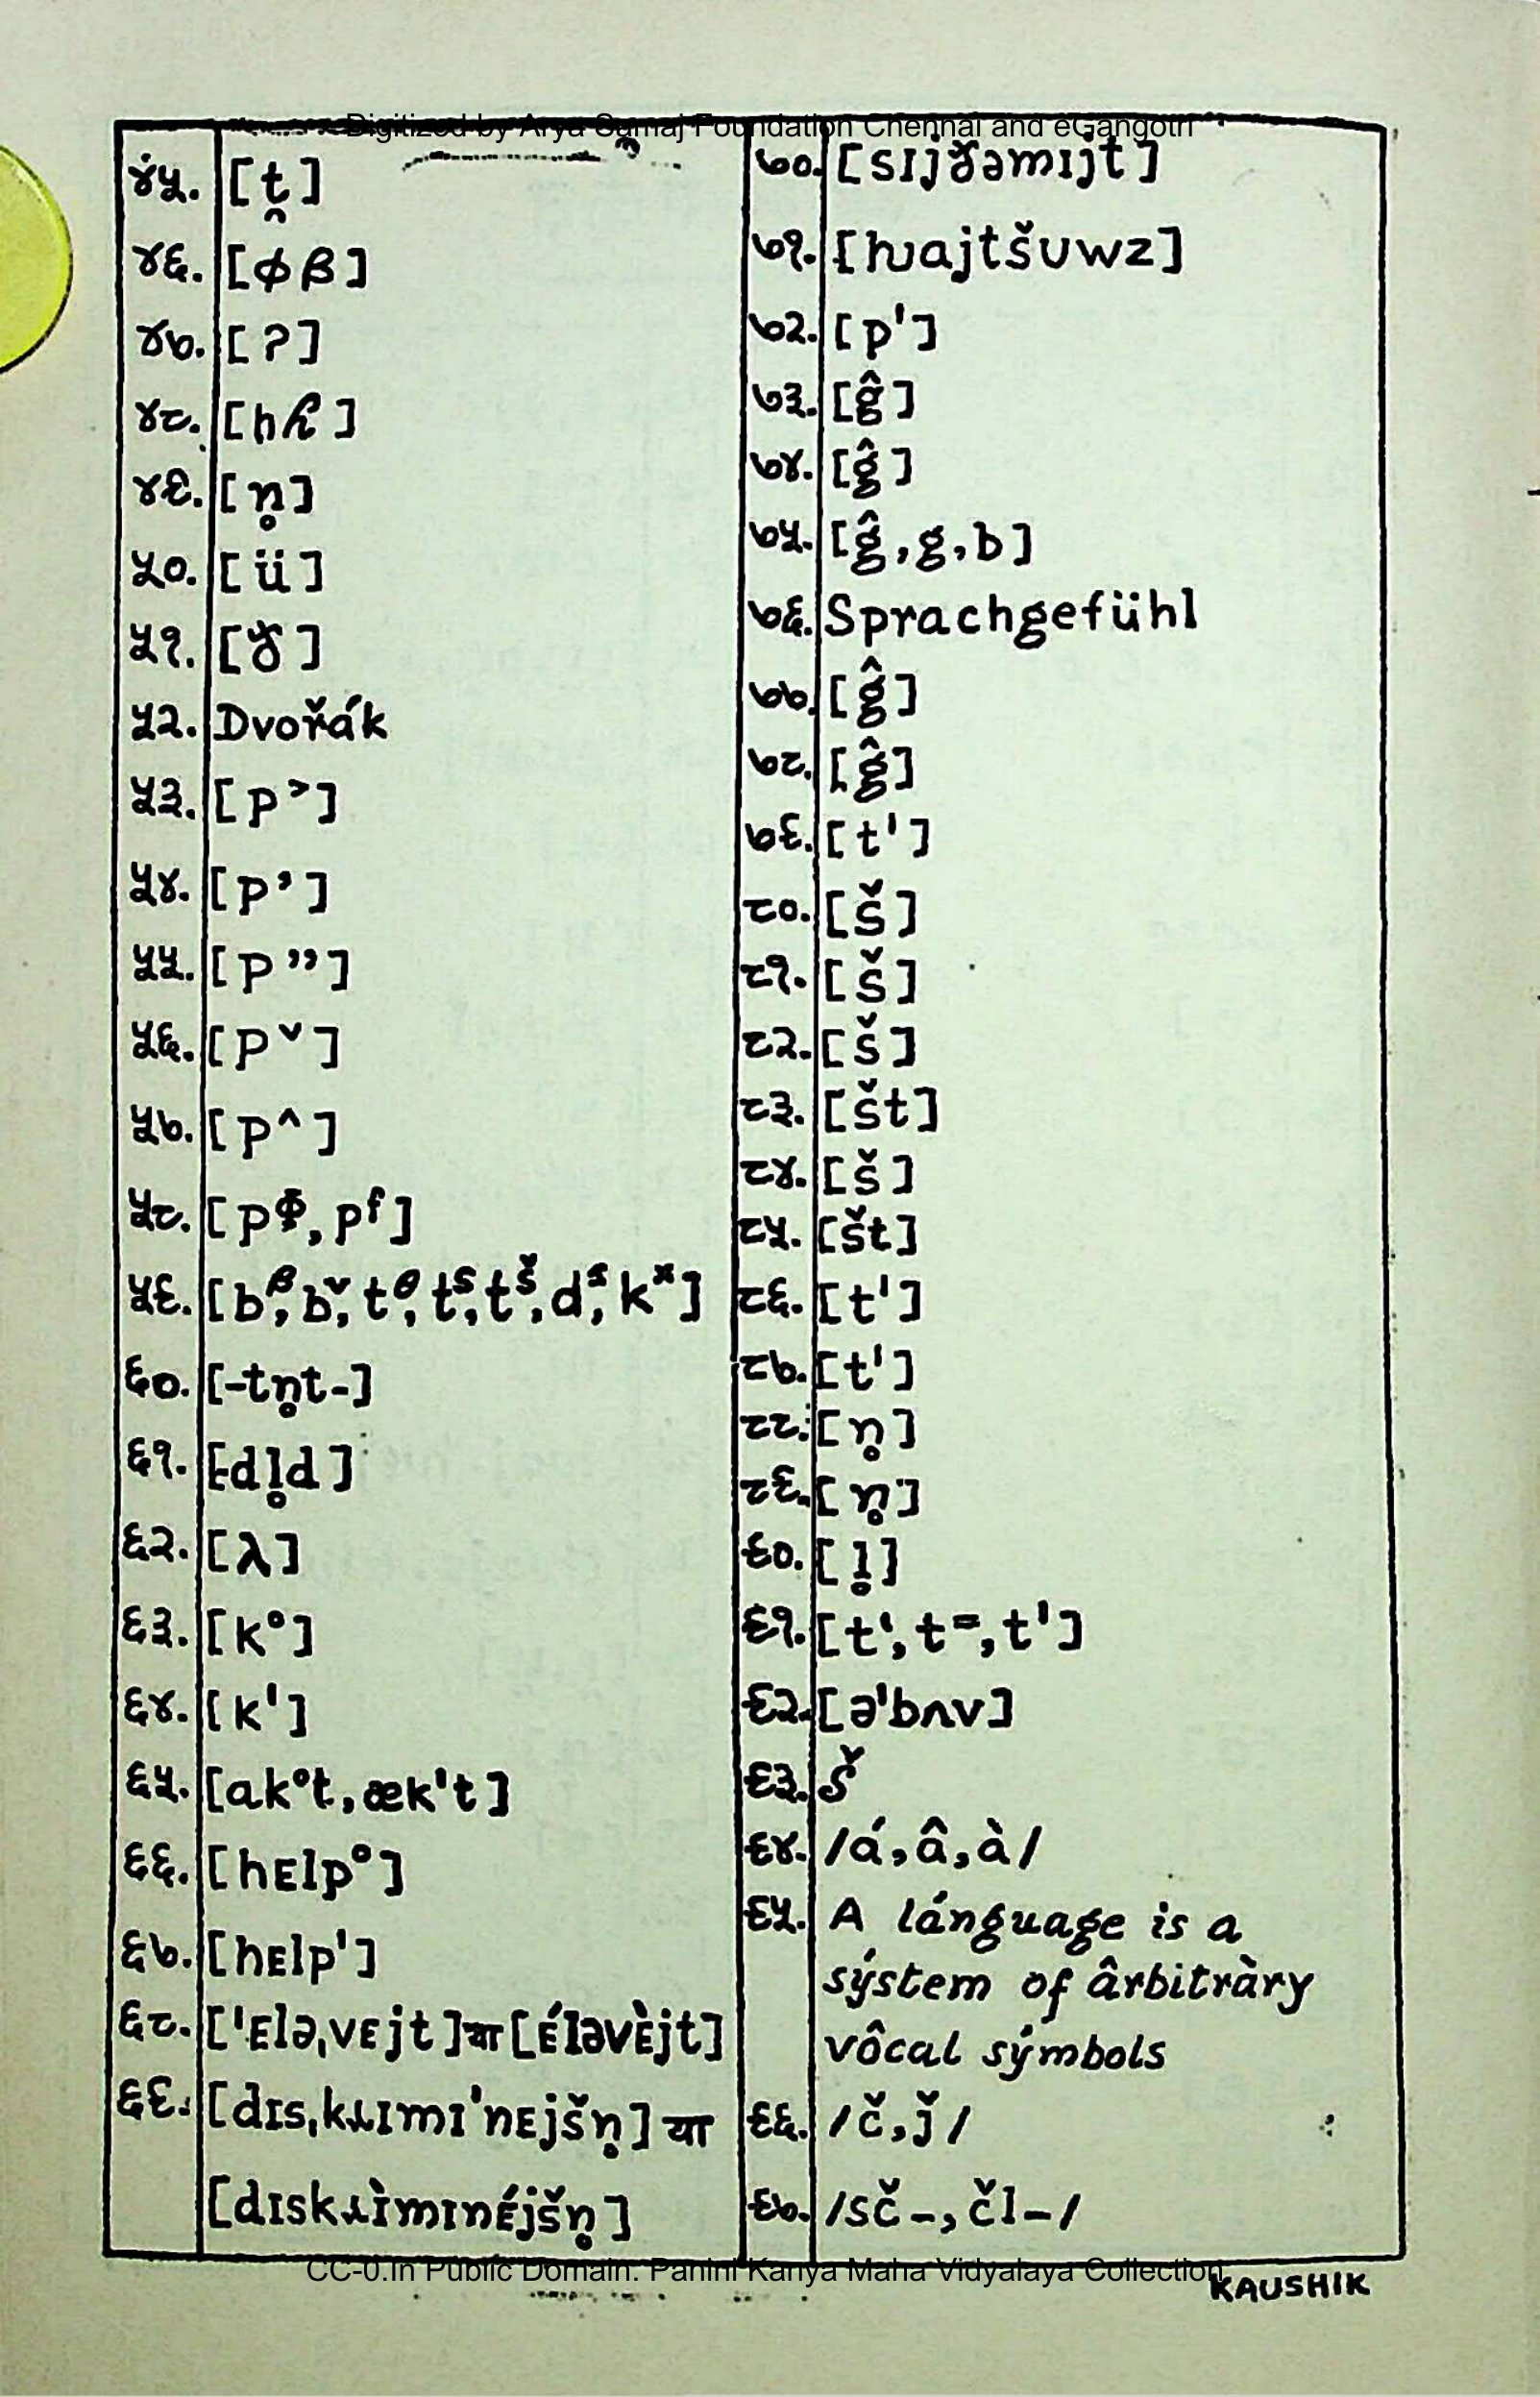 Digitized by Arya Samaj Foundation Chennai and eGangotri
४५. [t̯]
४६. [ɸ β]
४७. [ʔ]
४८. [h ɦ]
४९. [n̥]
५०. [ü]
५१. [ɣ̌]
५२. Dvořák
५३. [p˃]
५४. [p’]
५५. [p”]
५६. [pˇ]
५७. [p^]
५८. [pᶲ, pᶠ]
५९. [bᵝ, bᵛ, tᶿ, tˢ, tˢ̌, dᶻ, kˣ]
६०. [-tn̥t-]
६१. [dl̥d]
६२. [λ]
६३. [k°]
६४. [k']
६५. [ak°t, æk't]
६६. [hᴇlp°]
६७. [hᴇlp']
६८. ['ᴇləˌvᴇjt] या [ᴇ́ləvᴇ̀jt]
६९. [dɪsˌkɹɪmɪ'nᴇjšn̥] या
[dɪskɹɪ̀mɪnᴇ́jšn̥]
७०. [sɪjɣ̌əmɪjt]
७१. [ƕajtšᴜwz]
७२. [p']
७३. [ĝ]
७४. [ĝ]
७५. [ĝ, g, b]
७६. Sprachgefühl
७७. [ĝ]
७८. [ĝ]
७९. [t']
८०. [š]
८१. [š]
८२. [š]
८३. [št]
८४. [š]
८५. [št]
८६. [t']
८७. [t']
८८. [n̥]
८९. [n̥]
९०. [l̥]
९१. [t‘, t⁼, t']
९२. [ə'bʌv]
९३. š
९४. /á, â, à/
९५. A lánguage is a
sýstem of ârbitràry
vôcal sýmbols
९६. /č, ǰ/
९७. /sč-, čl-/
CC-0.In Public Domain. Panini Kanya Maha Vidyalaya Collection.
KAUSHIK